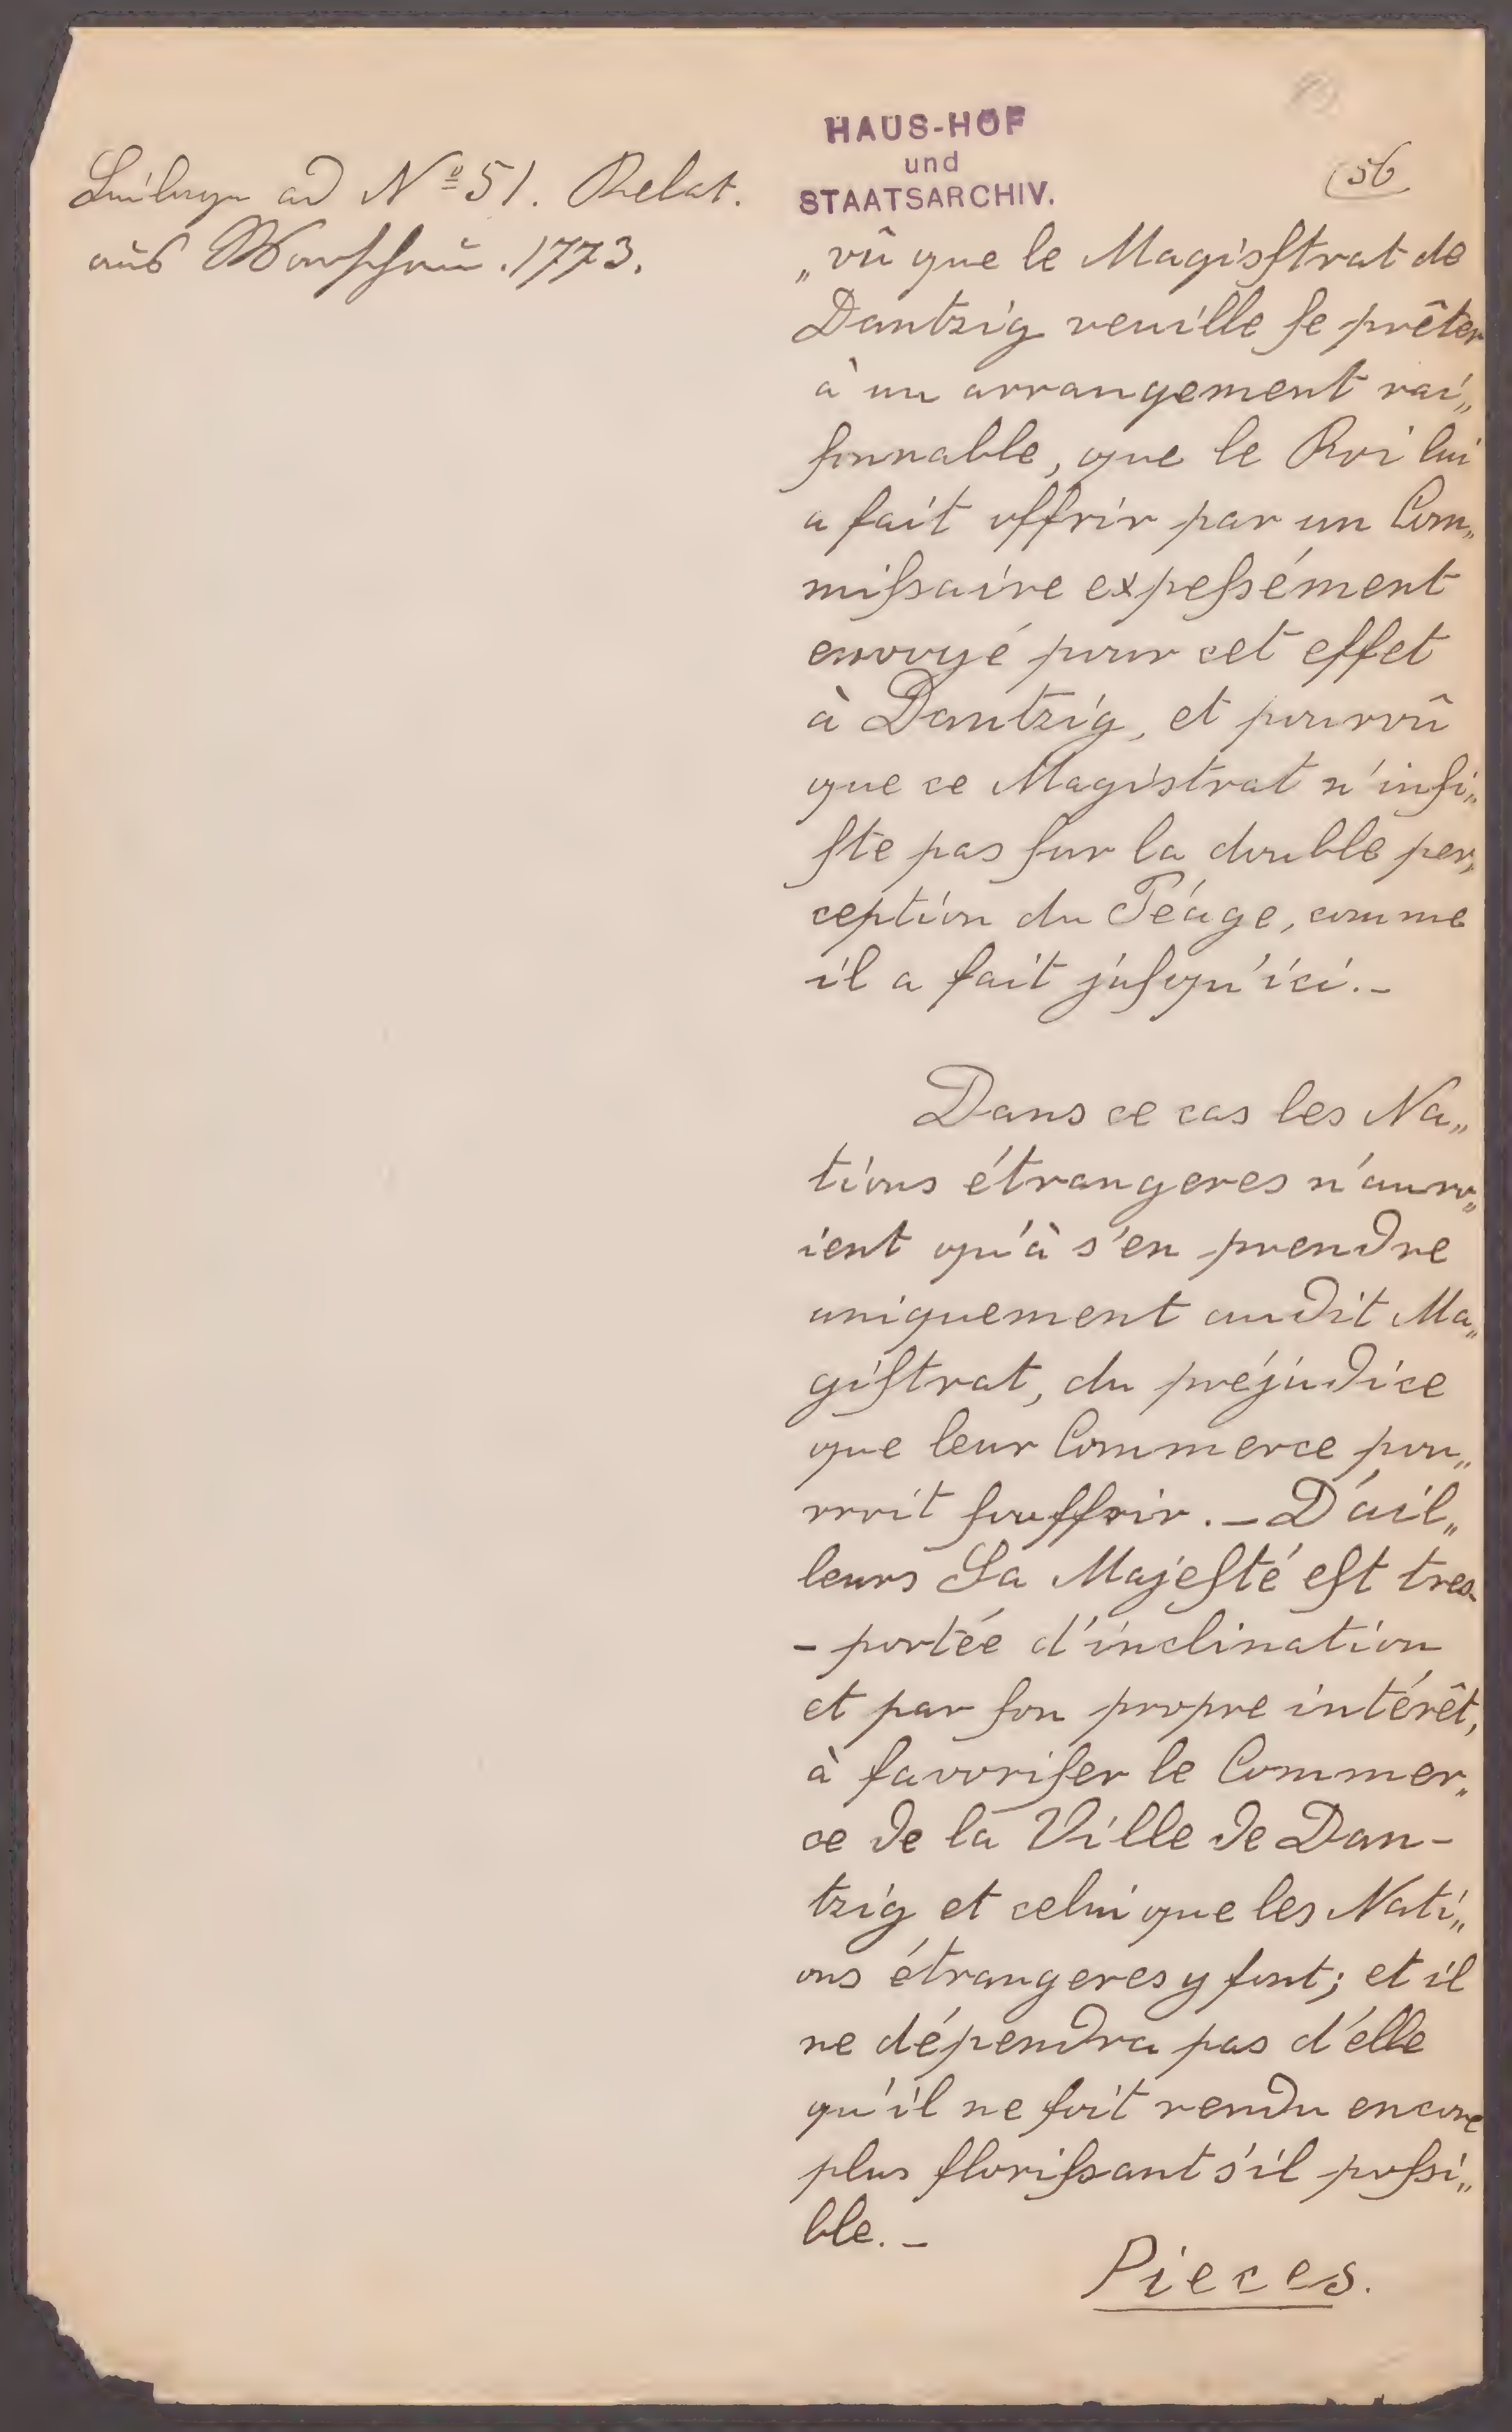 Beilage ad Nº 51. Relat.
aus Warschau. 1773.
HAUS-HOF
und
STAATSARCHIV.
56
„vû que le Magisſtrat de
Dantzig veuille ſe prêter
à un arrangement rai„
ſonnable, que le Roi lui
a fait offrir par un Com„
miſsaire expeſsément
envoyé pour cet effet
à Dantzig, et pourvû
que ce Magistrat n'inſi„
ſte pas ſur la double per„
ception du Péage, comme
il a fait juſqu'ici.-
Dans ce cas les Na„
tions étrangeres n'auro„
ient qu'à s'en prendre
uniquement audit Ma„
giſtrat, du préjudice
que leur Commerce pou„
rroit ſouffrir. - D'ail„
leurs Sa Majeſté eſt tres-
- portée d'inclination
et par ſon propre intérêt,
à favoriſer le Commer„
ce de la Ville de Dan-
tzig et celui que les Nati„
ons étrangeres y font; et il
ne dépendra pas d'elle
qu'il ne ſoit rendu encore
plus floriſsant s'il poſsi„
ble. -
Pieces.